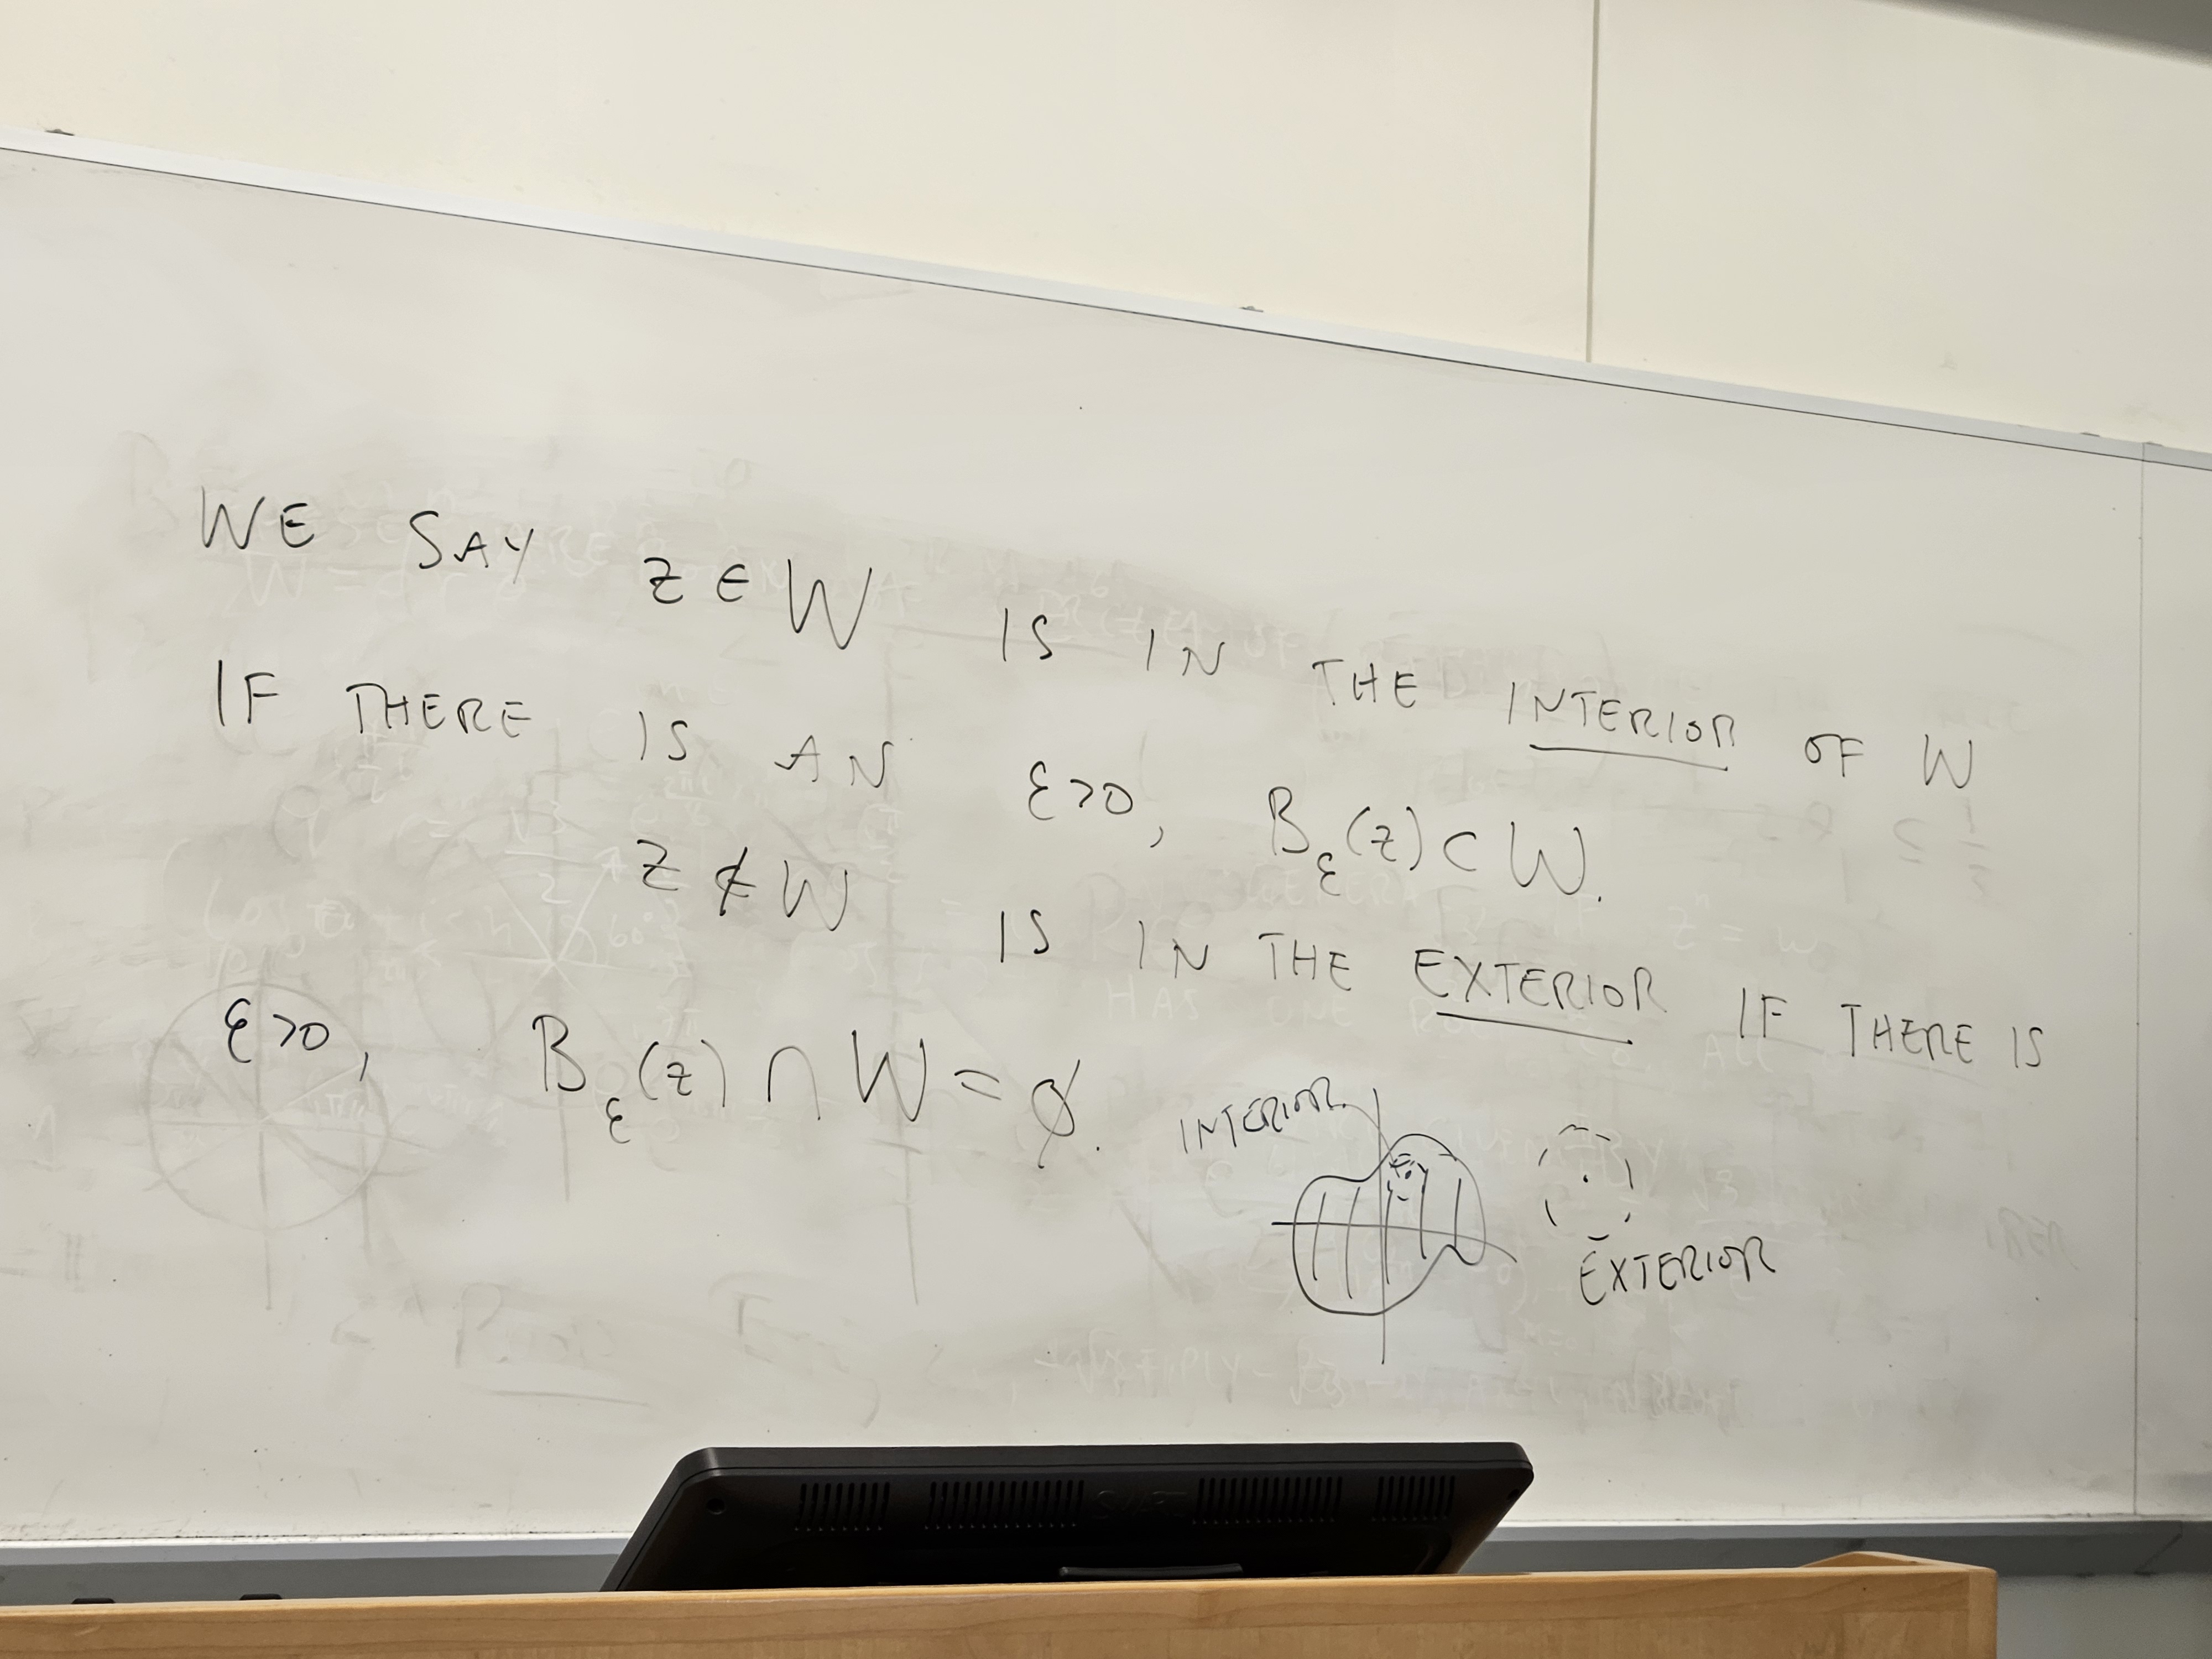 WE SAY z ∈ W IS IN THE INTERIOR OF W
IF THERE IS AN ε>0, B_ε(z) ⊂ W.
z ∉ W IS IN THE EXTERIOR IF THERE IS
ε>0, B_ε(z) ∩ W = ∅.
INTERIOR
EXTERIOR